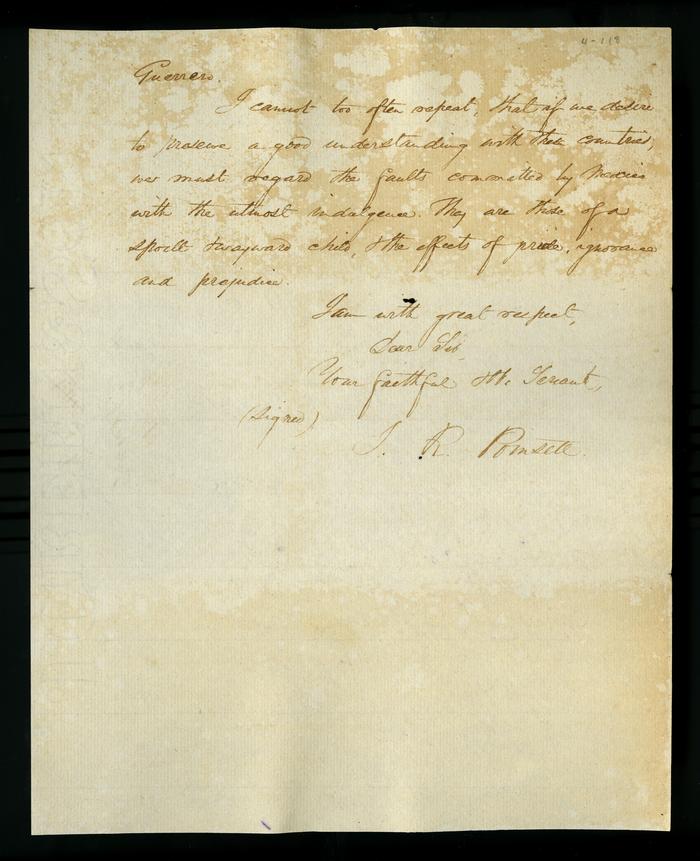 4-118
Guerrero.
I cannot too often repeat, that if we desire
to preserve a good understanding with these countries,
we must regard the faults committed by Mexico
with the utmost indulgence. They are those of a
spoilt & wayward child, & the effects of pride, ignorance
and prejudice.
I am with great respect,
Dear Sir,
Your faithful Servant,
(Signed)
J. R. Poinsett.